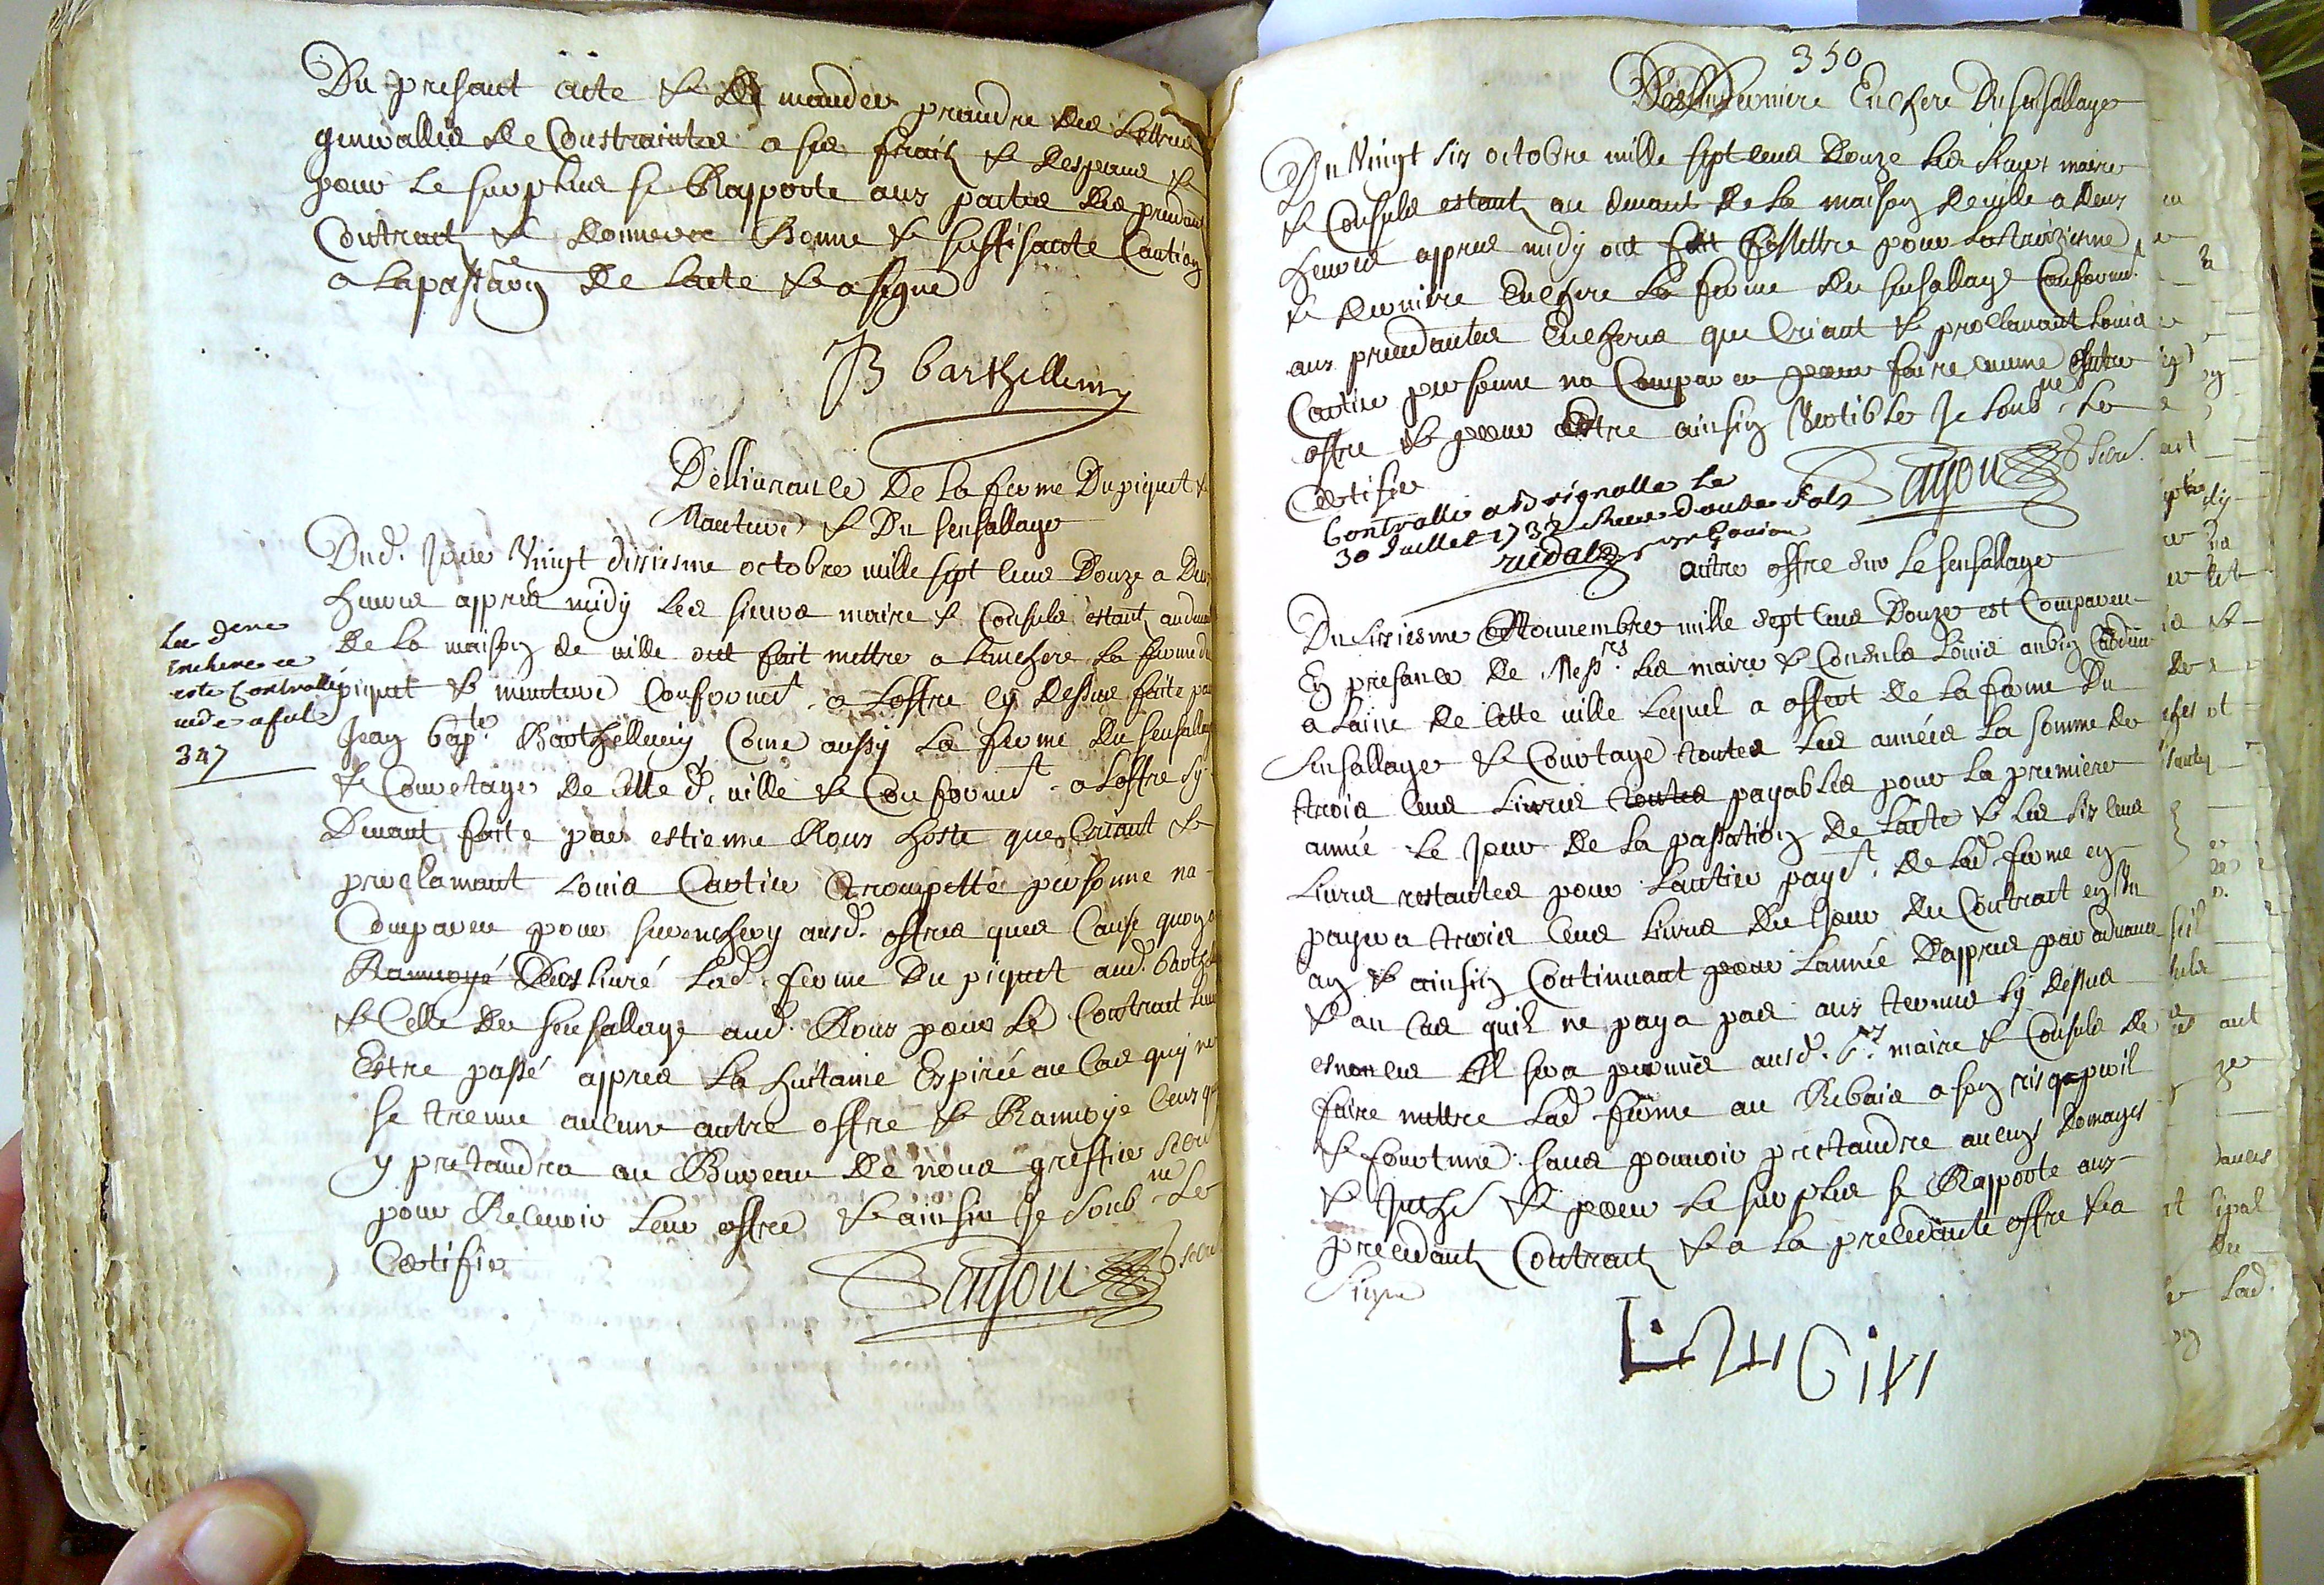 Du presant acte & de mander prandre des Lettres
generalles de Contraintes a ses fraix & despans &
pour Le surplus se Rapporte aux pactes des precedans
Contract & Donnera Bonne & suffisante Caution
a la passaon De lacte & a signe
JB barthellemy
Dellivrance De La ferme Du piquet &
Mauture & Du sensallage
Dud. Jour Vingt sixiesme octobre mille sept cens Douze a Deux
heures appres midy Les sieurs maire & Consuls estant audevant
De La maison de ville ont fait mettre a Lenchere La ferme du
piquet & mauture Conformt. a Loffre cy Dessus faite par
Jean bapte. Barthellemy Come aussy La ferme Du sensallage
& Couretage De Cette d. ville & Conformt. a Loffre sy
Devant faite par estienne Roux hoste que Criant &
proclamant Louis Cartier trompette personne na
Compareu pour surencherir ausd. offres ques Cause quoy on
Ranvoyé Deslivré Lad. ferme Du piquet aud. barthellemy
& Celle Du sensallage aud. Roux pour Le Contract Leur
Estre passé appres La huitaine Expirée au Cas quy ne
se treuve aucune autre offre & Ranvoye Ceux quy
y pretandra au Bureau De nous greffier secre.
pour Recevoir Leur offre & ainsin Je soubne Le
Certifie
Sayou secre.
Les deux
Encheres ce
este Controllé
ude a ful.
347
350
Derniere Enchere Du sensallage
Du Vingt six octobre mille sept cens Douze Les sieurs maire
& Consuls estant au devant De La maison De ville a Deux
heures appres midy ont fait mettre pour La troiziesme
& Derniere Enchere La ferme Du sensallage Conformt.
aux precedantes Encheres que Criant & proclamant Louis
Cartier personne na Comparu pour faire aucune autre
offre & pour Estre ainsin Veritible Je soubne Le
Certifie
Sayou secre.
Controllé a Drignolle Le
30 Juillet 1732 Receu Douse sols
ridal
autre offre sur Le sensallage
Du sixiesme Nouvembre mille sept cens Douze est Compareu
En presance De Messrs. Les maire & Consuls Louis aubin Cardeur
a Laine De Cette ville Lequel a offert de La ferme Du
Sensallage & Courtage toutes Les années La somme De
trois cens Livres toutes payables pour La premiere
année Le Jour De La passation De Lacte & Les six cens
Livres restantes pour Lantier payt. De Lad. ferme en
payera trois cens Livres Du Jour Du Contract en Un
an & ainsin Continuant pour Lannée Dappres par advance
& au Cas quil ne paya pas aux termes sy Dessus
esnonces Il sera permis ausd. srs. maire & Consuls De
faire mettre Lad. ferme au Rebais a son risq peril
& fourtune sans pouvoir pretandre aucuns Domages
& Intes & pour Le surplus se Rapporte aux
precedant Contract & a La precedante offre & a
Signe